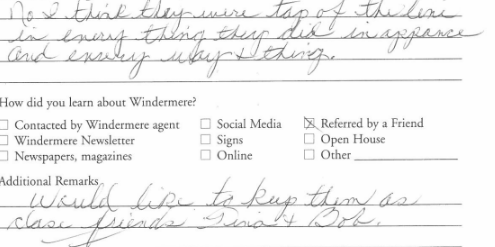 No I think they were top of the line
in every thing they did in appance
and ensery way & thing.
How did you learn about Windermere?
☐ Contacted by Windermere agent ☐ Social Media ☒ Referred by a Friend
☐ Windermere Newsletter ☐ Signs ☐ Open House
☐ Newspapers, magazines ☐ Online ☐ Other
Additional Remarks
Would like to keep them as
close friends Tina & Bob.